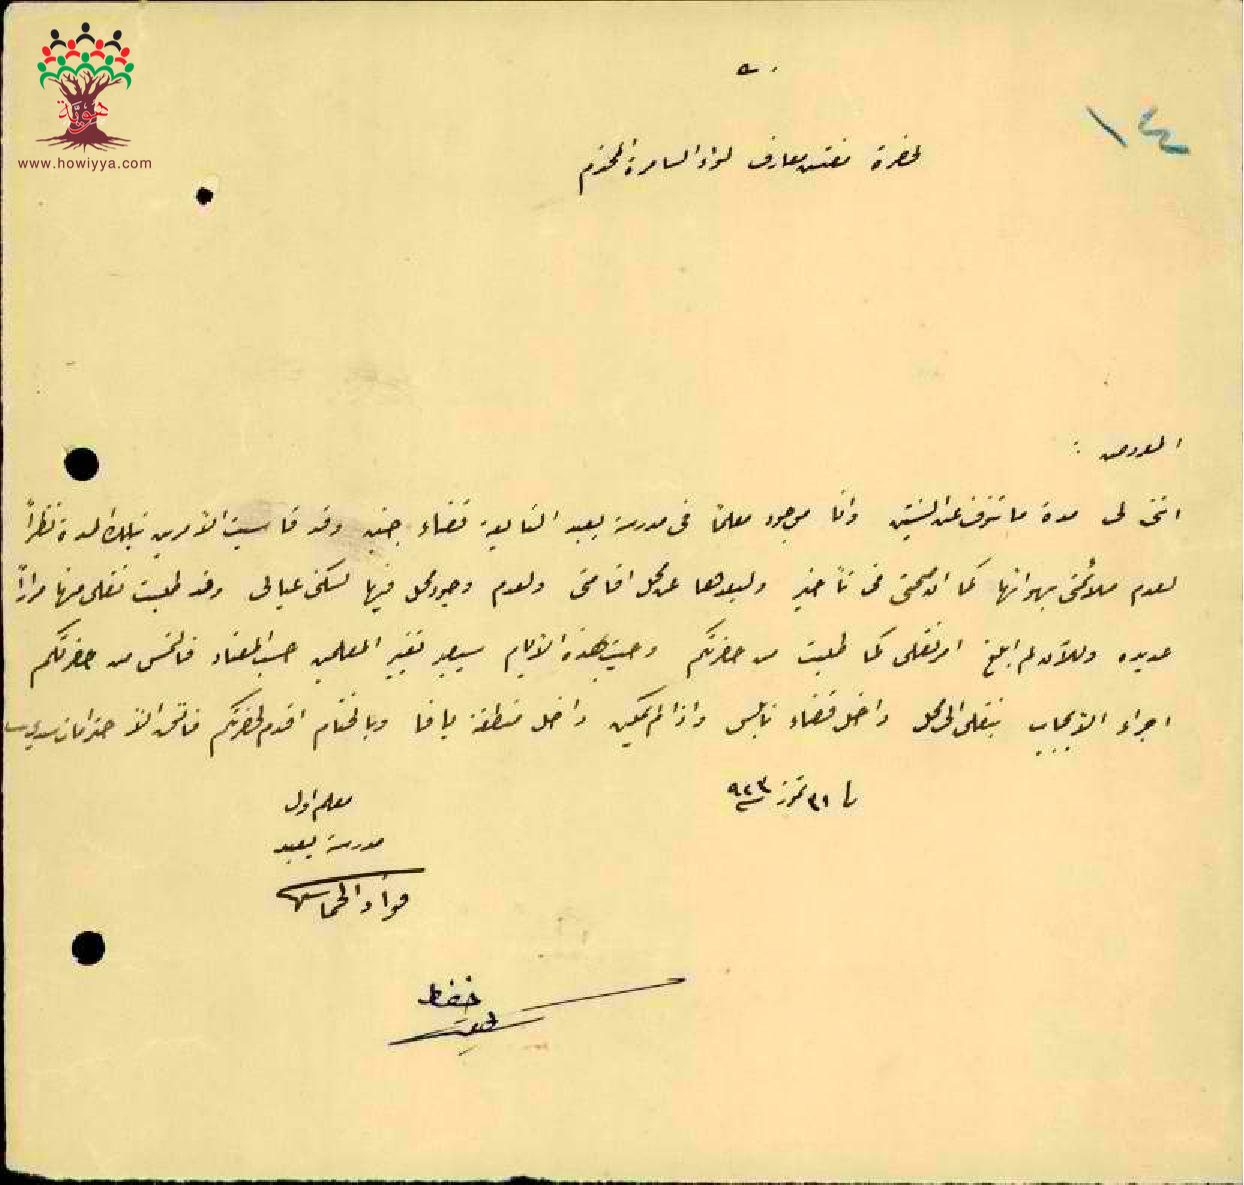 هوية
www.howiyya.com
١٤
لحضرة مفتش معارف لواء السامرة المحترم
المعروض :
انني لي مدة ما تنوف عن السنتين وانا موجود معلماً في مدرسة يعبد التابعة قضاء جنين وقد قاسيت الأمرين بتلك المدة نظراً
لعدم ملائمتي بهوائها كما ان صحتي في تأخير ولبعدها عن محل اقامتي ولعدم وجود محل فيها لسكن عيالي وقد طلبت نقلي منها مراراً
عديده وللآن لم ابلغ امر نقلي كما طلبت من حضرتكم وحيث بهذه الايام سيصير تغيير المعلمين حسب المعتاد فالتمس من حضرتكم
اجراء الايجاب بنقلي الى محل داخل قضاء نابلس واذا لم يمكن داخل منطقة يافا وبالختام اقدم لحضرتكم فائق الاحترام سيدي
٣١ تموز ٩٢٣
معلم اول
مدرسة يعبد
فؤاد الخماش
حفظ